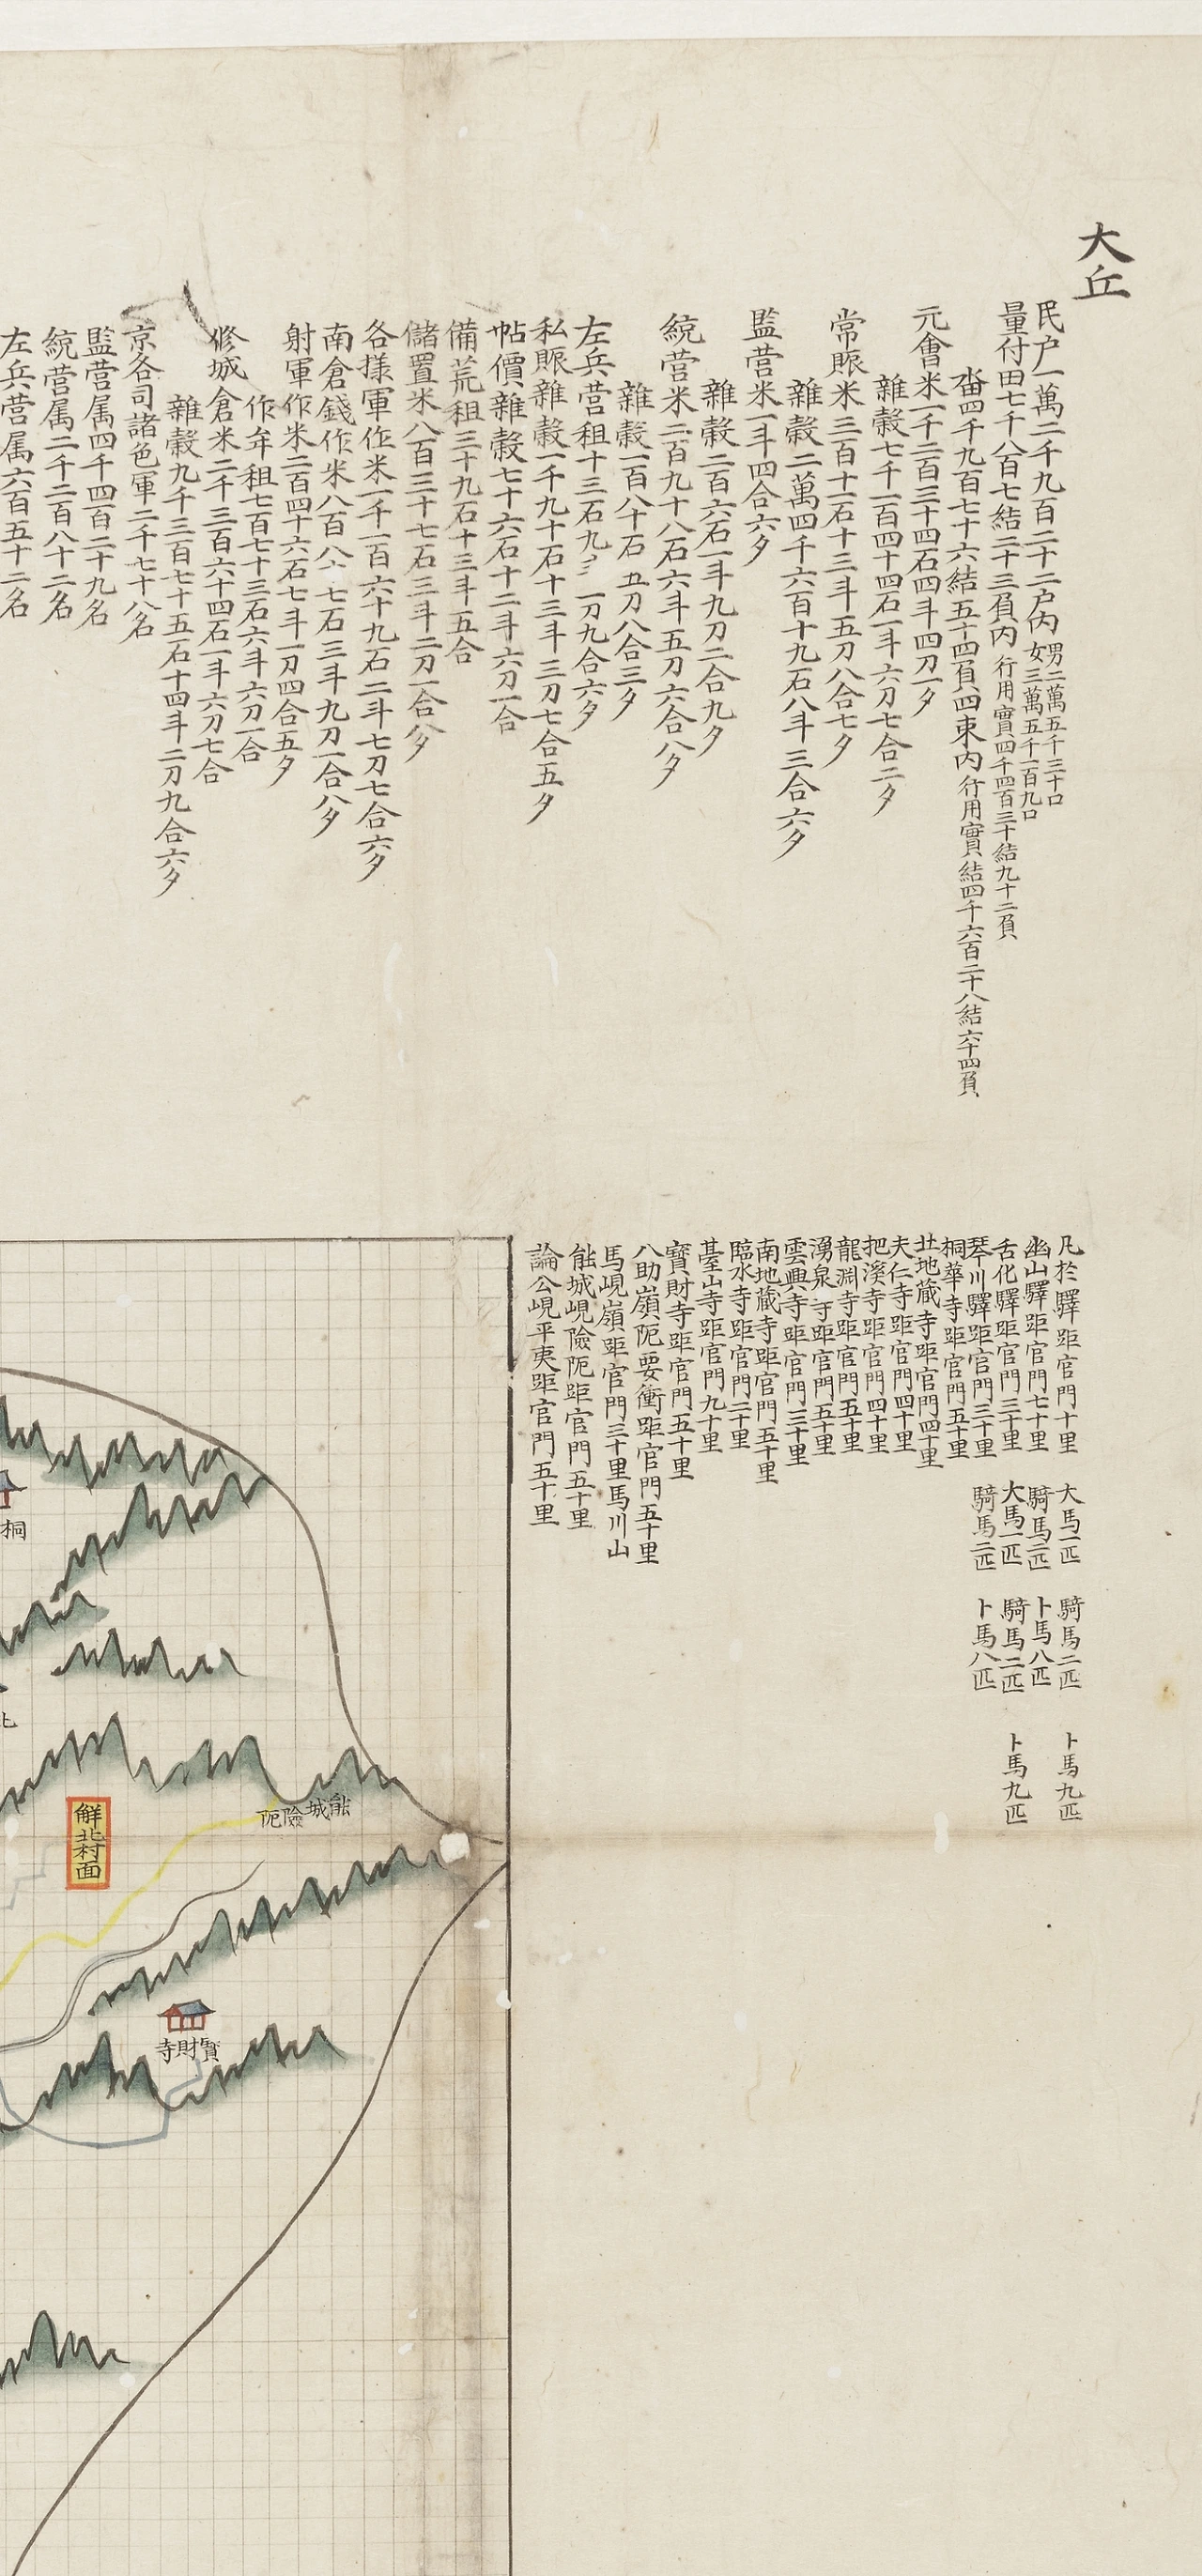 大丘
民户一萬二千九百二十二户内 男二萬五千三十口
女三萬五千一百九口
量付田七千八百七結二十三負内 行用實四千四百三十結九十二負
畓四千九百七十六結五十四負四束内 行用實結四千六百二十八結六十四負
元會米一千二百三十四石四斗四刀一夕
雜穀七千一百四十四石一斗六刀七合二夕
常賑米三百十一石十三斗五刀八合七夕
雜穀二萬四千六百十九石八斗三合六夕
監营米一斗四合六夕
雜穀二百六石一斗九刀二合九夕
統营米二百九十八石六斗五刀六合八夕
雜穀一百八十石 五刀八合三夕
左兵营租十三石九 一刀九合六夕
私賑雜穀一千九十石十三斗三刀七合五夕
帖價雜穀七十六石十二斗六刀一合
備荒租三十九石十三斗五合
儲置米八百三十七石三斗二刀一合八夕
各様軍作米一千一百六十九石二斗七刀七合六夕
南倉錢作米八百八 七石三斗九刀一合八夕
射軍作米二百四十六石七斗一刀四合五夕
作牟租七百七十三石六斗六刀一合
修城倉米二千三百六十四石一斗六刀七合
雜穀九千三百七十五石十四斗二刀九合六夕
京各司諸色軍二千七十八名
監营属四千四百二十九名
統营属二千二百八十二名
左兵营属六百五十二名
凡於驛距官門十里 大馬一匹 騎馬二匹 卜馬九匹
幽山驛距官門七十里 騎馬二匹 卜馬八匹
舌化驛距官門三十里 大馬一匹 騎馬二匹 卜馬九匹
琴川驛距官門三十里 騎馬二匹 卜馬八匹
桐華寺距官門五十里
北地蔵寺距官門四十里
夫仁寺距官門四十里
把溪寺距官門四十里
龍淵寺距官門五十里
湧泉寺距官門五十里
雲興寺距官門三十里
南地蔵寺距官門五十里
臨水寺距官門二十里
基山寺距官門九十里
寶財寺距官門五十里
八助嶺阨要衝距官門五十里
馬峴嶺距官門三十里馬川山
能城峴險阨距官門五十里
論公峴平夷距官門五十里
桐
北
能城險阨
解北村面
寶財寺